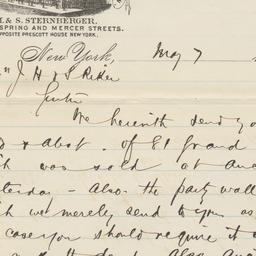 M. & S. STERNBERGER.
SPRING AND MERCER STREETS.
OPPOSITE PRESCOTT HOUSE NEW YORK.
New York, May 7
J H & S Riker
Gents
We herewith send yo
& abst. of 21 Grand
was sold at Auc
terday - Also the party wall
h we merely send to you as
case you should require it
Also